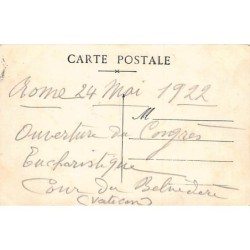 CARTE POSTALE
Rome 24 Mai 1922
M
Ouverture du Congrès
Eucharistique
Cour du Belvédère
(Vatican)